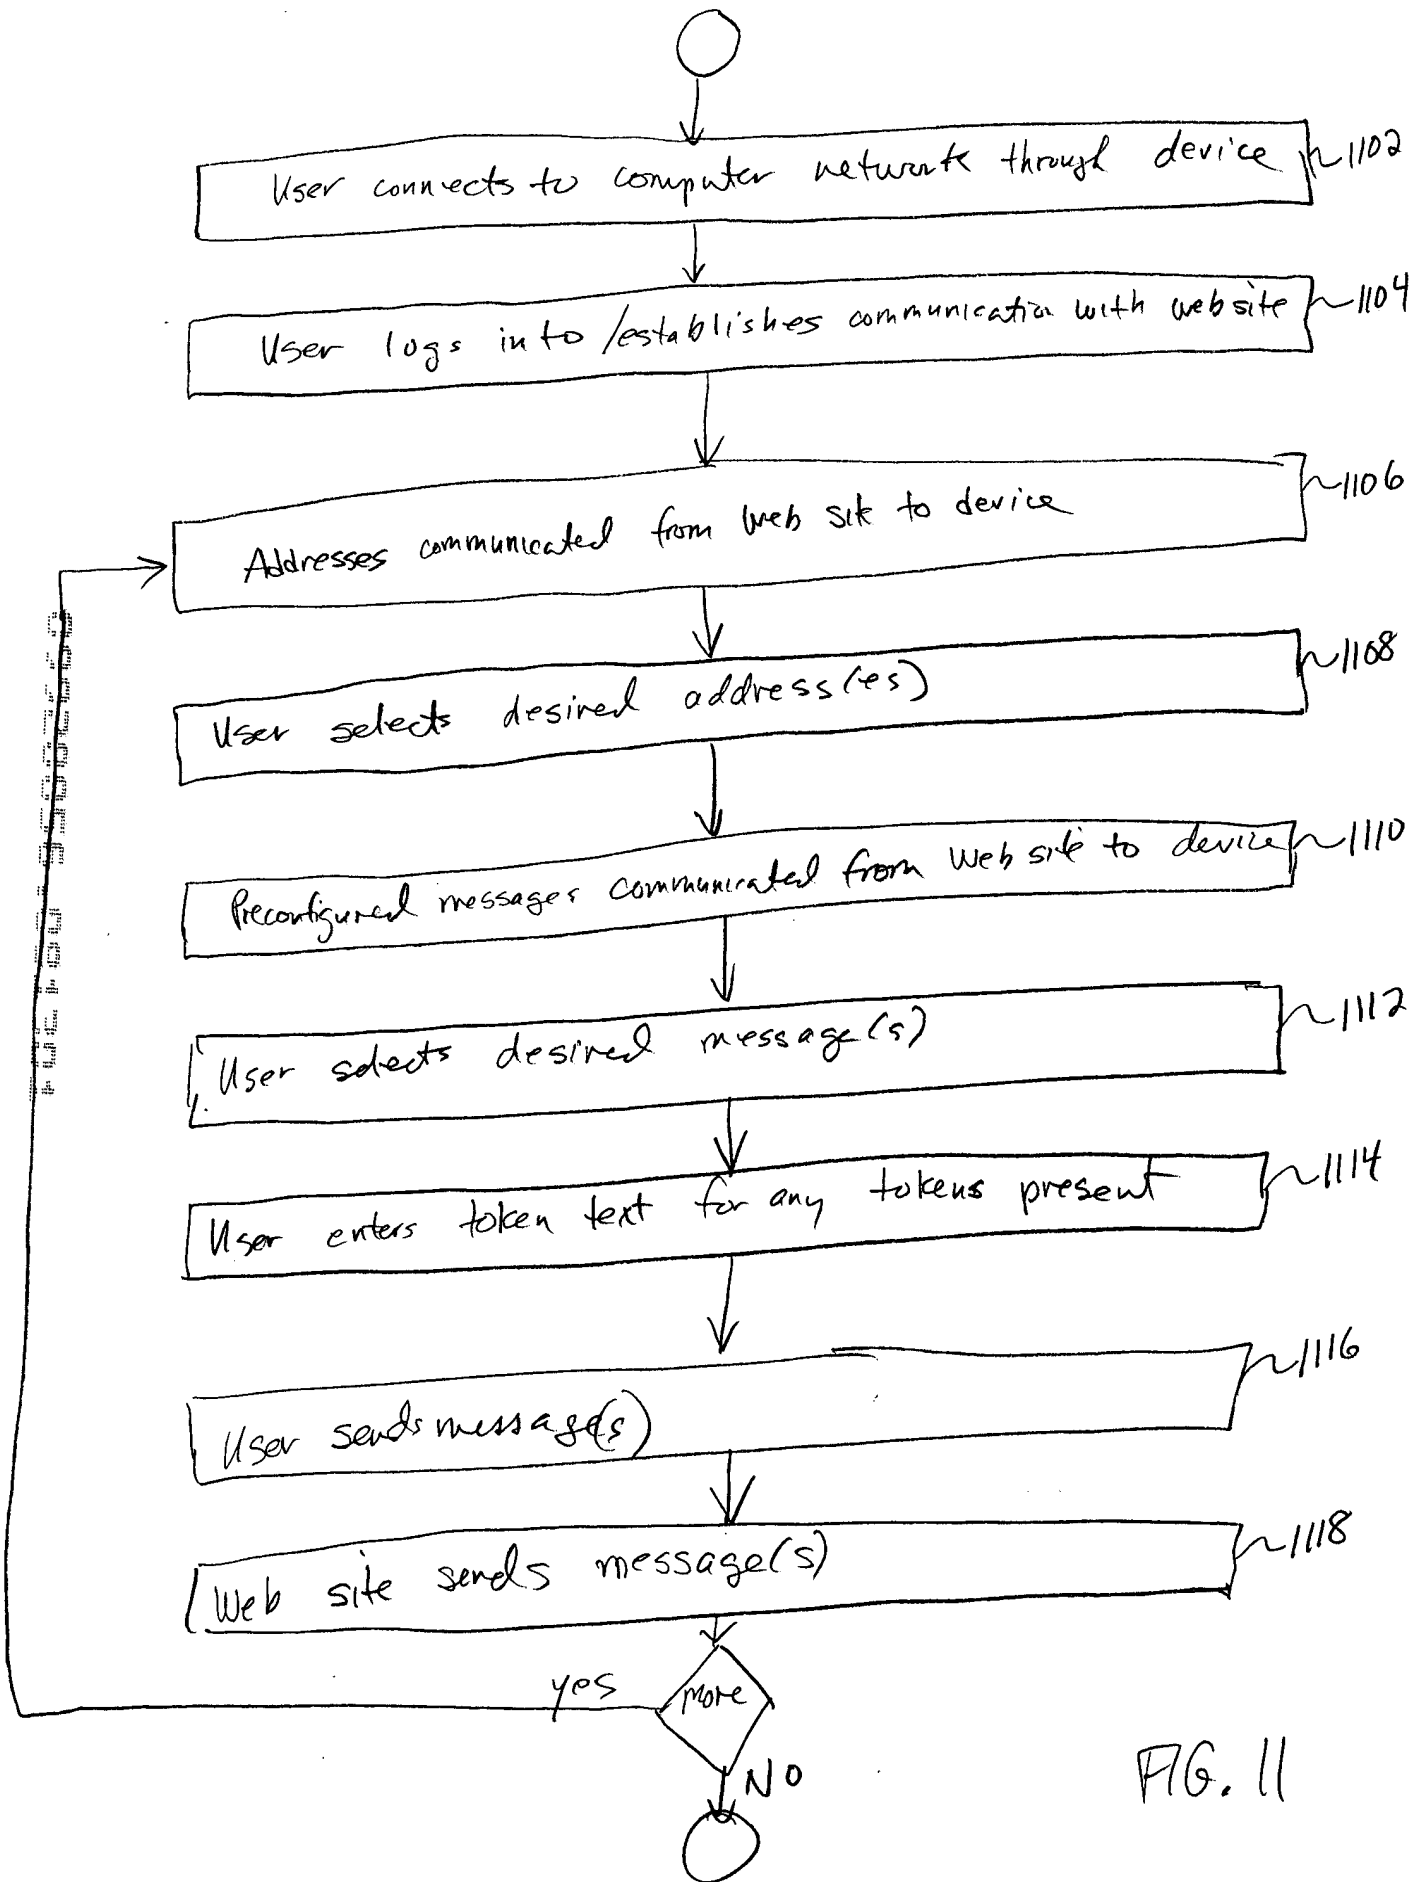 User connects to computer network through device 1102
User logs into/establishes communication with website 1104
Addresses communicated from Web site to device 1106
User selects desired address(es) 1108
Preconfigured messages communicated from Web site to device 1110
User selects desired message(s) 1112
User enters token text for any tokens present 1114
User sends message(s) 1116
Web site sends message(s) 1118
yes
more
NO
FIG. 11